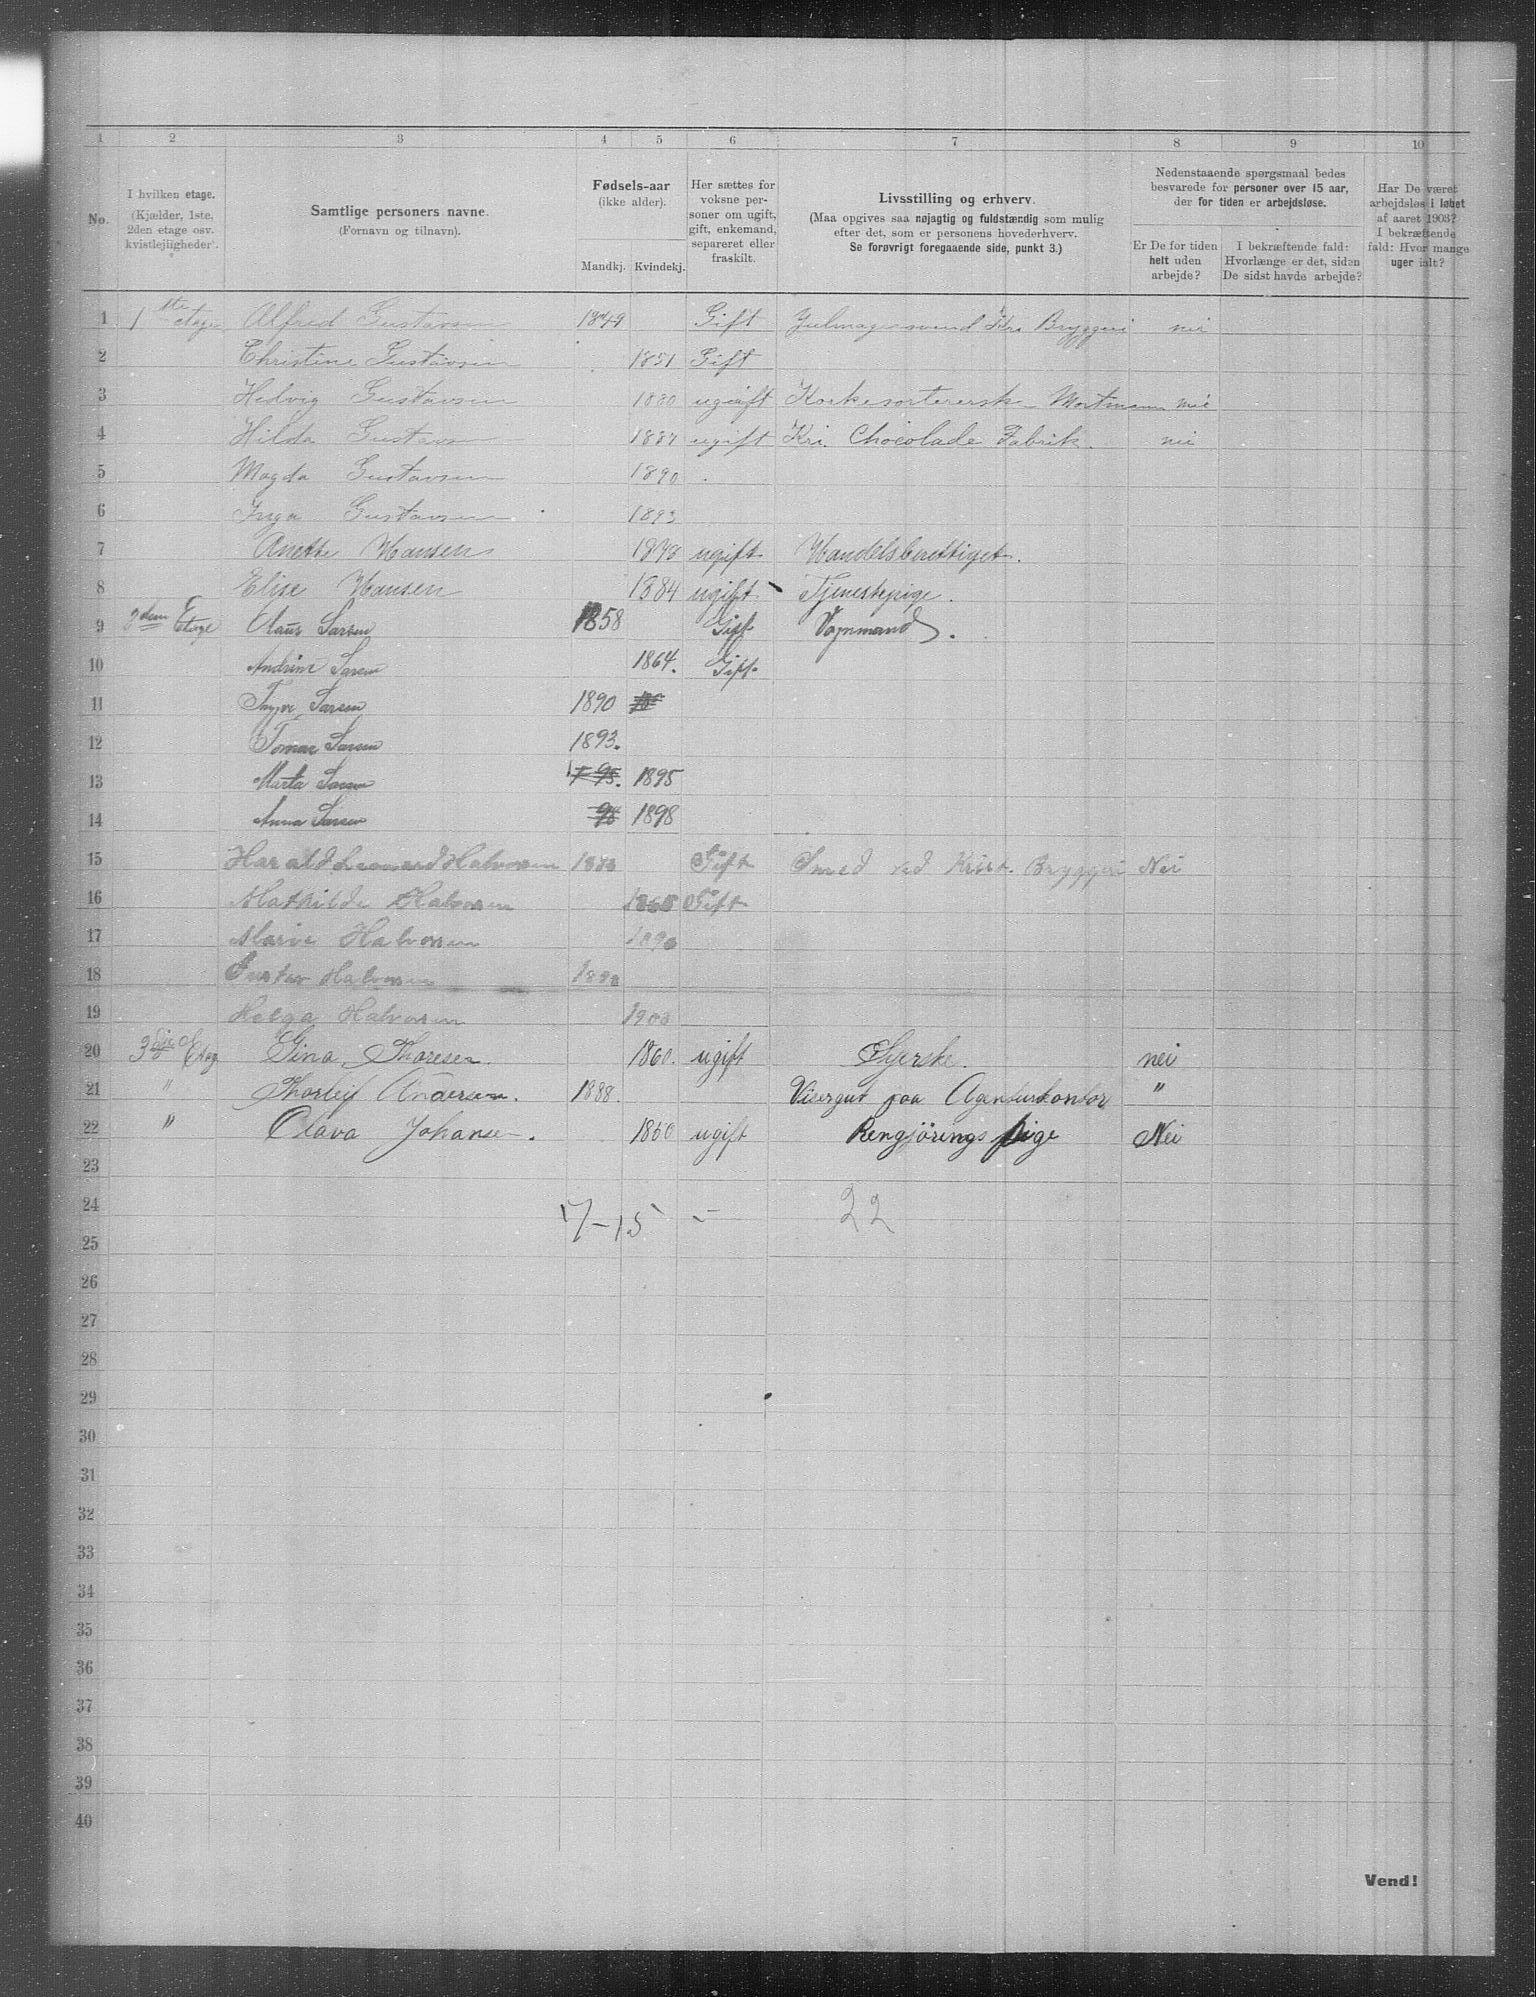 1 2 3 4 5 6 7 8 9 10
No.
I hvilken etage.
(Kjælder, 1ste,
2den etage osv.
kvistlejligheder).
Samtlige personers navne.
(Fornavn og tilnavn).
Fødsels-aar
(ikke alder).
Mandkj. Kvindekj.
Her sættes for
voksne per-
soner om ugift,
gift, enkemand,
separeret eller
fraskilt.
Livsstilling og erhverv.
(Maa opgives saa nøjagtig og fuldstændig som mulig
efter det, som er personens hovederhverv.
Se forøvrigt foregaaende side, punkt 3.)
Nedenstaaende spørgsmaal bedes
besvarede for personer over 15 aar,
der for tiden er arbejdsløse.
Er De for tiden
helt uden
arbejde?
I bekræftende fald:
Hvorlænge er det, siden
De sidst havde arbejde?
Har De været
arbejdsløs i løbet
af aaret 1903?
I bekræftende
fald: Hvor mange
uger ialt?
1 1ste etage Alfred Gustavsen 1849 Gift Julmagersvend Kra Bryggeri nei
2 Christine Gustavsen 1851 Gift
3 Hedvig Gustavsen 1880 ugift Korkesortererske Mortmann nei
4 Hilda Gustavsen 1887 ugift Kri. Chocolade Fabrik. nei
5 Magda Gustavsen 1890
6 Inga Gustavsen 1893
7 Anette Hansen 1878 ugift Handelsberettiget.
8 Elise Hansen 1884 ugift Tjenestepige.
9 2den Etage Claus Larsen 1858 Gift Vognmand.
10 Andrine Larsen 1864. Gift
11 Yngve Larsen 1890
12 Tomas Larsen 1893.
13 Marta Larsen 95. 1895
14 Anna Larsen 98 1898
15 Harald Leonard Halvorsen 1873 Gift Smed ved Krist. Bryggeri Nei
16 Mathilde Halvorsen 1865 Gift
17 Marie Halvorsen 1896
18 Gustav Halvorsen 1898
19 Helga Halvorsen 1900
20 3die Etag Gina Thoresen. 1860. ugift Syerske. nei
21 " Thorleif Andersen. 1888. Visergut paa Agenturkontor "
22 " Olava Johansen. 1850 ugift Rengjörings pige Nei
23
24 7-15 - 22
25
26
27
28
29
30
31
32
33
34
35
36
37
38
39
40
Vend!